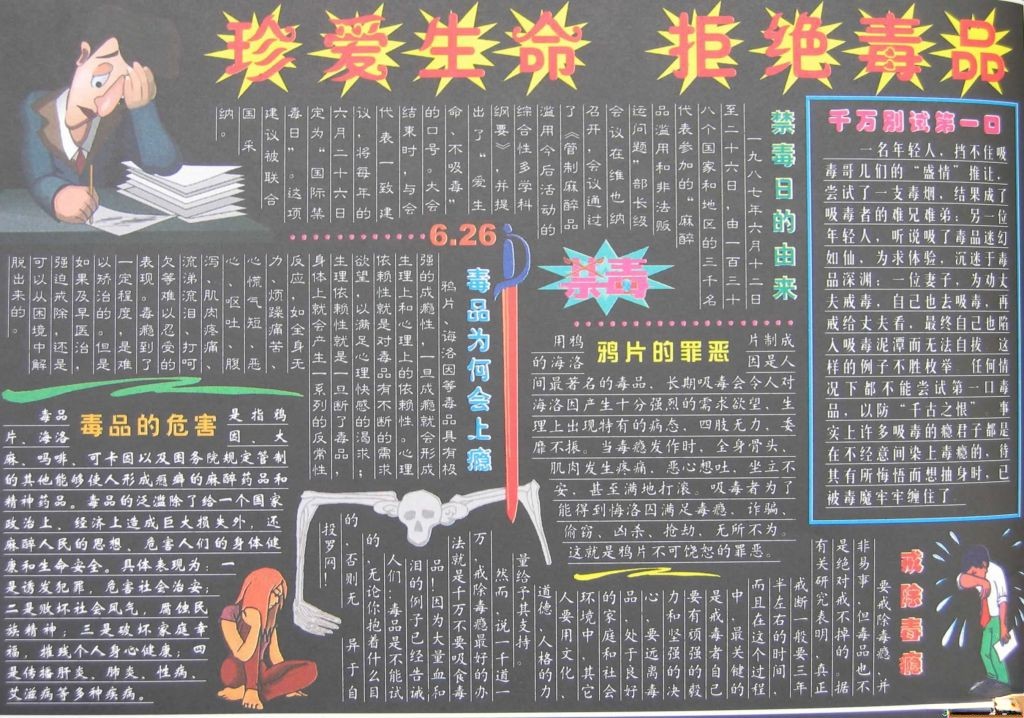 珍爱生命 拒绝毒品
禁毒日的由来
一九八七年六月十 日
至二十六日,由一百三十
八个国家和地区的三千名
代表参加的“麻醉
品滥用和非法贩
运问题”部长级
会议在维也纳
召开,会议通过
了《管制麻醉品
滥用今后活动的
综合性多学科
纲要》,并提
出了“爱生
命、不吸毒”
的口号。大会
结束时,与会
代表一致建
议,将每年的
六月二十六日
定为“国际禁
毒日”。这项
建议被联合
国采
纳。
千万别试第一口
一名年轻人,挡不住吸
毒哥儿们的“盛情”推让,
尝试了一支毒烟,结果成了
吸毒者的难兄难弟;另一位
年轻人,听说吸了毒品迷幻
如仙,为求体验,沉迷于毒
品深渊;一位妻子,为劝丈
夫戒毒,自己也去吸毒,再
戒给丈夫看,最终自己也陷
入吸毒泥潭而无法自拔。这
样的例子不胜枚举。任何情
况下都不能尝试第一口毒
品,以防“千古之恨”。事
实上许多吸毒的瘾君子都是
在不经意间染上毒瘾的,待
其有所悔悟而想抽身时,已
被毒魔牢牢缠住了。
6.26
禁毒
毒品为何会上瘾
鸦片、海洛因等毒品具有极
强的成瘾性,一旦成瘾就会形成
生理上和心理上的依赖性。心理
依赖性就是对毒品有不断的需求
欲望,以满足心理快感的渴求;
生理依赖性就是一旦断了毒品,
身体上就会产生一系列的反常性
反应,如全身无
力、烦躁痛苦、
心慌气短、恶
心、呕吐、腹
泻、肌肉疼痛、
流涕流泪、打呵
欠等难以忍受的
表现。毒瘾到了
一定程度,是难
以矫治的。但是
如果及早医治,
强迫戒除,还是
可以从困境中解
脱出来的。
鸦片的罪恶
用鸦 片制成
的海洛 因是人
间最著名的毒品。长期吸毒会令人对
海洛因产生十分强烈的需求欲望、生
理上出现特有的病态、四肢无力、委
靡不振。当毒瘾发作时、全身骨头、
肌肉发生疼痛、恶心想吐、坐立不
安、甚至满地打滚。吸毒者为了
能得到海洛因满足毒瘾、诈骗、
偷窃、凶杀、抢劫、无所不为。
这就是鸦片不可饶恕的罪恶。
毒品的危害
毒品 是指鸦
片、海洛 因、大
麻、吗啡、可卡因以及国务院规定管制
的其他能够使人形成瘾癖的麻醉药品和
精神药品。毒品的泛滥除了给一个国家
政治上、经济上造成巨大损失外,还
麻醉人民的思想、危害人们的身体健
康和生命安全。具体表现为:一
是诱发犯罪,危害社会治安;
二是败坏社会风气,腐蚀民
族精神;三是破坏家庭幸
福,摧残个人身心健康;四
是传播肝炎、肺炎、性病、
艾滋病等多种疾病。
戒除毒瘾
要戒除毒瘾、并
非易事,但毒品也不
是绝对戒不掉的。据
有关研究表明,真正
戒断一般要三年
半左右的时间,
而且在这个过程
中,最关键的
是戒毒者自己
要有顽强的毅
力和坚强的决
心,要远离毒
品,处于良好
的家庭和社会
环境中,其它
人要用文化、
道德、人格的力
量给予其支持。
然而,说一千道一
万,戒除毒瘾最好的办
法就是千万不要吸食毒
品!因为大量血和
泪的例子已经告诫
人们:毒品是不能试
的,无论你抱着什么目
的,否则无 异于自
投罗网!